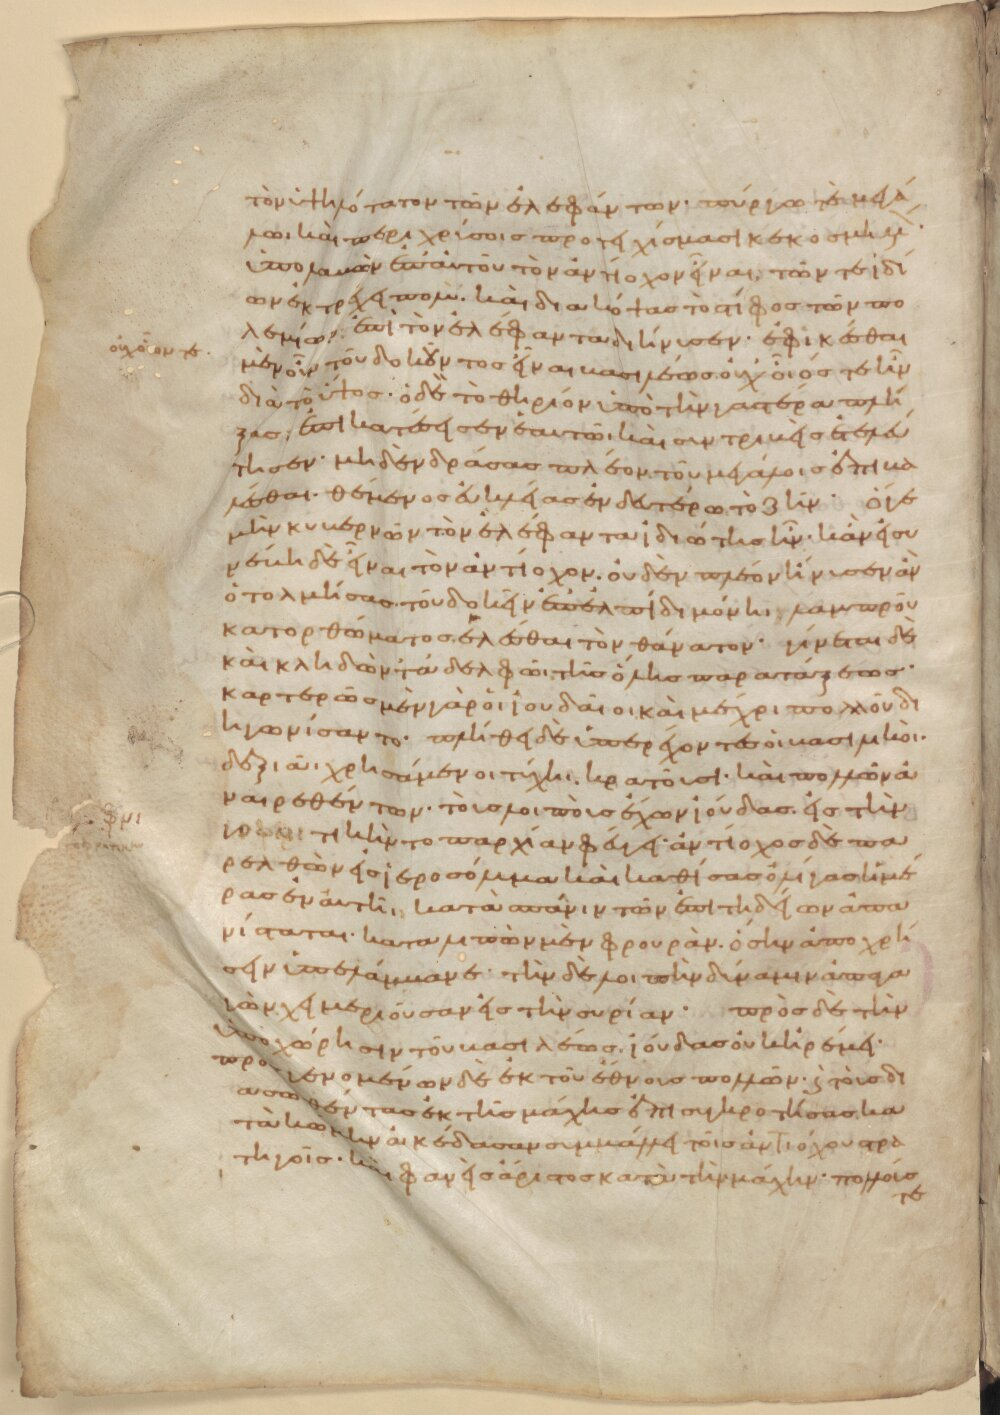 τὸν ὑψηλότατον τῶν ἐλεφάντων· πύργω τε μεγά
λωι καὶ περιχρύσοις προτειχίσμασι κεκοσμημέ·
ὑπολαβὼν ἐπ' αὐτοῦ τὸν ἀντίοχον εἶναι, τῶν τε ἰδί
ων ἐκτρέχει πολὺ. καὶ διακόψας τὸ στίφος τῶν πο
λεμίων· ἐπὶ τὸν ἐλέφαντα διήνυσεν· ἐφικέσθαι
οὐχ οἷόν τε·
μὲν οὖν τοῦ δοκοῦντος εἶναι βασιλέως οὐχ οἷός τε ἦν
διὰ τὸ ὕψος· ὁ δὲ τὸ θηρίον ὑπὸ τὴν γαστέρα πλή
ξας, ἐπικατέσεισεν ἑαυτῶι· καὶ συντριβεὶς ἐτελεύ
τησεν· μηδὲν δράσας πλέον τοῦ μεγάλοις ἐπιβα
λέσθαι· θέμενος εὐκλείας ἐν δευτέρω τὸ ζῆν· ὅ γε
μὴν κυβερνῶν τὸν ἐλέφαντα ἰδιώτης ἦν· κἂν εἰ συ
νέβη δὲ εἶναι τὸν ἀντίοχον. οὐδὲν πλέον ἤνυσεν ἂν
ὁ τολμήσας. τοῦ δοκεῖν ἐπ' ἐλπίδι μόνηι λαμπροῦ
κατορθώματος. ἑλέσθαι τὸν θάνατον· γίνεται δὲ
καὶ κληδὼν τἀδελφῶι τῆς ὅλης παρατάξεως·
καρτερῶς μὲν γὰρ οἱ ἰουδαῖοι καὶ μέχρι πολλοῦ δι
ηγωνίσαντο· πλήθει δὲ ὑπερέχοντες οἱ βασιλικοὶ·
δεξιᾶι χρησάμενοι τύχηι. κρατοῦσι· καὶ πολλῶν ἀ
ναιρεθέντων· τοὺς λοιποὺς ἔχων ἰούδας. εἰς τὴν
τικὴν τοπαρχίαν φεύγει· ἀντίοχος δὲ πα
ρελθὼν εἰς ἱεροσόλυμα καὶ καθίσας ὀλίγας ἡμέ
ρας ἐν αὐτῆι, κατὰ σπάνιν τῶν ἐπιτηδείων ἀπα
νίσταται· καταλιπὼν μὲν φρουρὰν. ὅσην ἀποχρή
σειν ὑπελάμβανε· τὴν δὲ λοιπὴν δύναμιν ἀπαγα
γὼν. χειμεριοῦσαν εἰς τὴν συρίαν· πρὸς δὲ τὴν
ὑποχώρησιν τοῦ βασιλέως. ἰούδας οὐκ ἠρέμει·
προσγενομένων δὲ ἐκ τοῦ ἔθνους πολλῶν· καὶ τοὺς δι
ασωθέντας ἐκ τῆς μάχης ἐπισυγκροτήσας. κα
τὰ κώμην ἀκέδασαν συμβάλλει τοῖς ἀντιόχου στρα
τηγοῖς· καὶ φανεὶς ἄριστος κατὰ τὴν μάχην· πολλοὺς
τε